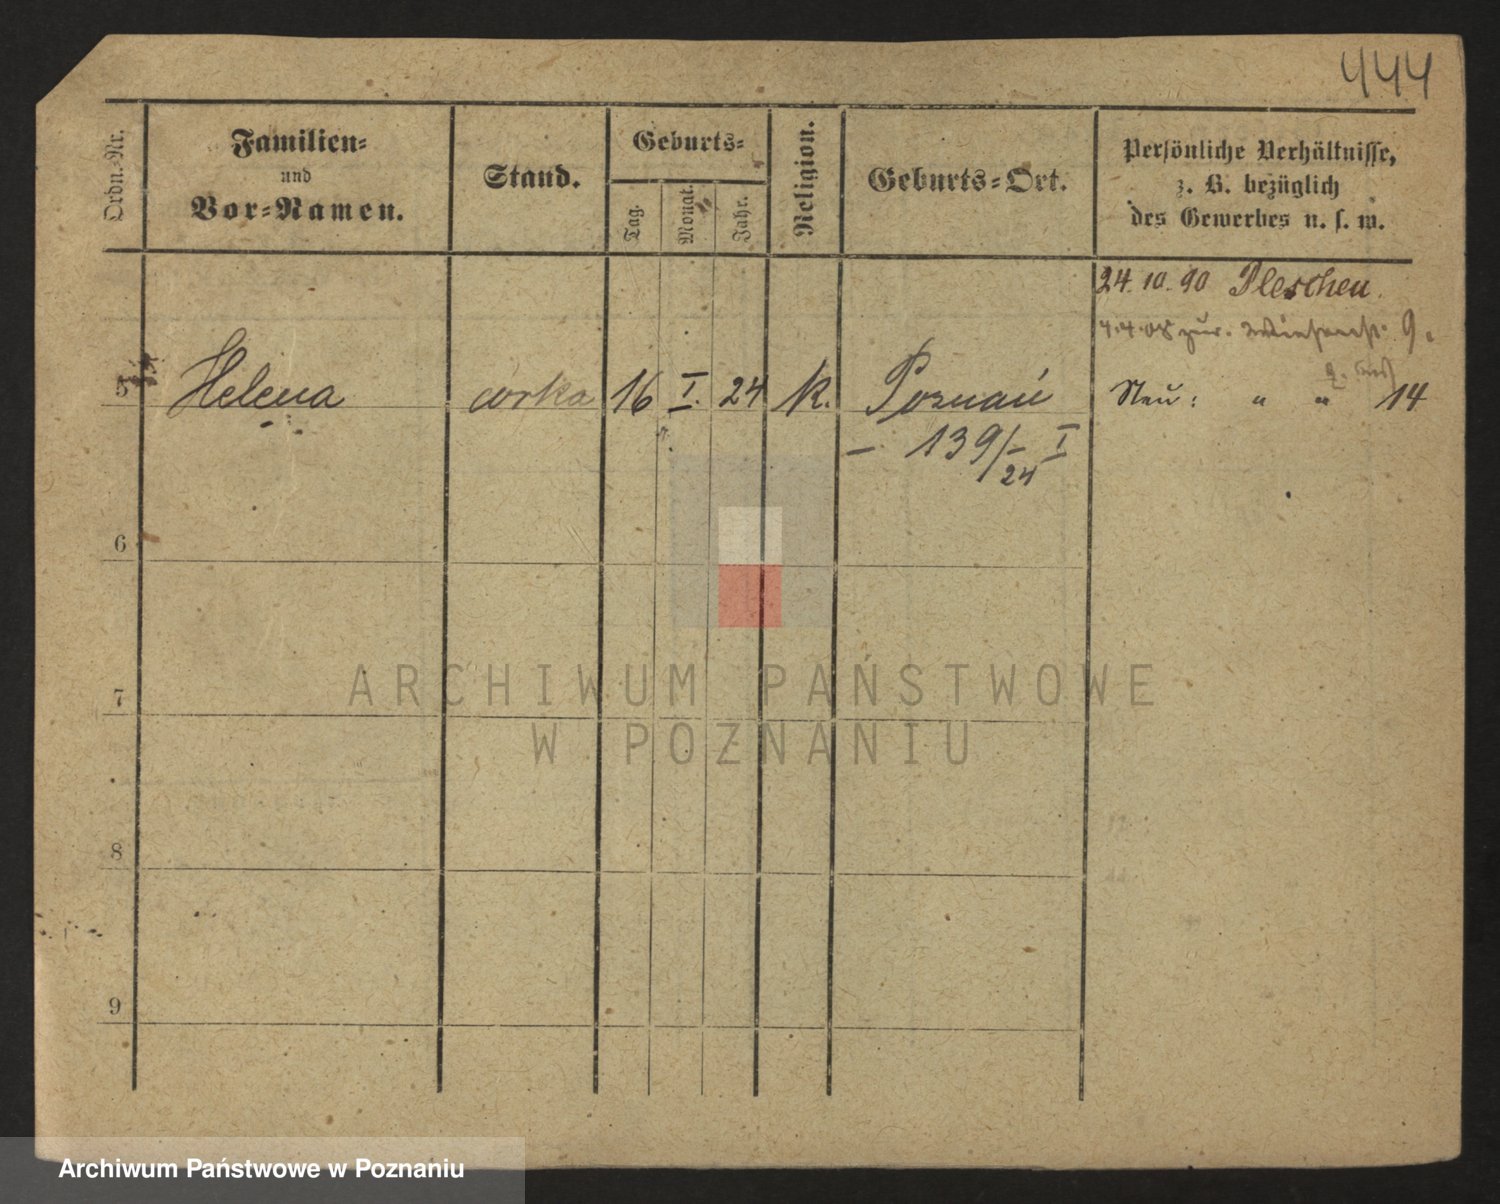 444
Ordn.-Nr.
Familien-
und
Vor-Namen.
Stand.
Geburts-
Tag.
Monat.
Jahr.
Religion.
Geburts-Ort.
Persönliche Verhältnisse,
z. B. bezüglich
des Gewerbes u. s. w.
24. 10. 90 Pleschen.
4.4.08 zur. 9.
5 Helena córka 16 I. 24 k. Poznań Neu: " " 14
– 139/24 I
6
7
8
9
ARCHIWUM PAŃSTWOWE
W POZNANIU
Archiwum Państwowe w Poznaniu